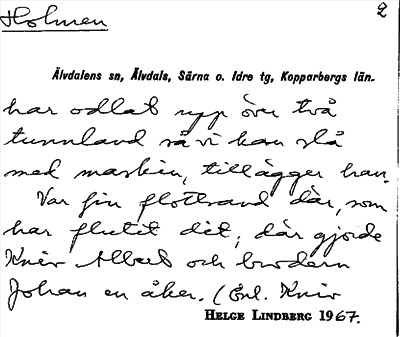 Holmen 2
Älvdalens sn, Älvdals, Särna o. Idre tg, Kopparbergs län.
har odlat upp över två
tunnland så vi kan slå
med maskin, tillägger han.
Var fin flottsand där, som
har flutit dit, där gjorde
Knix Albert och brodern
Johan en åker. (Enl. Knix
HELGE LINDBERG 1967.